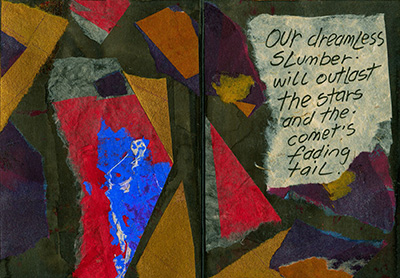 Our dreamless
SLumber.
will outlast
the stars
and the.
comet's
fading
tail.